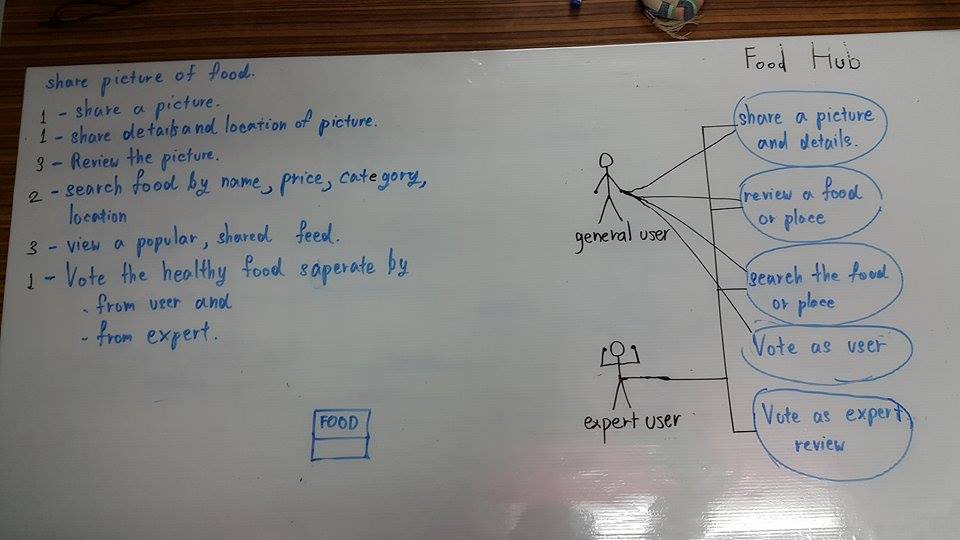 share picture of food.
1 - share a picture.
1 - share details and location of picture.
3 - Review the picture.
2 - search food by name, price, category,
location
3 - view a popular, shared feed.
1 - Vote the healthy food saperate by
- from user and
- from expert.
FOOD
Food Hub
share a picture
and details.
review a food
or place
search the food
or place
Vote as user
Vote as expert
review
general user
expert user